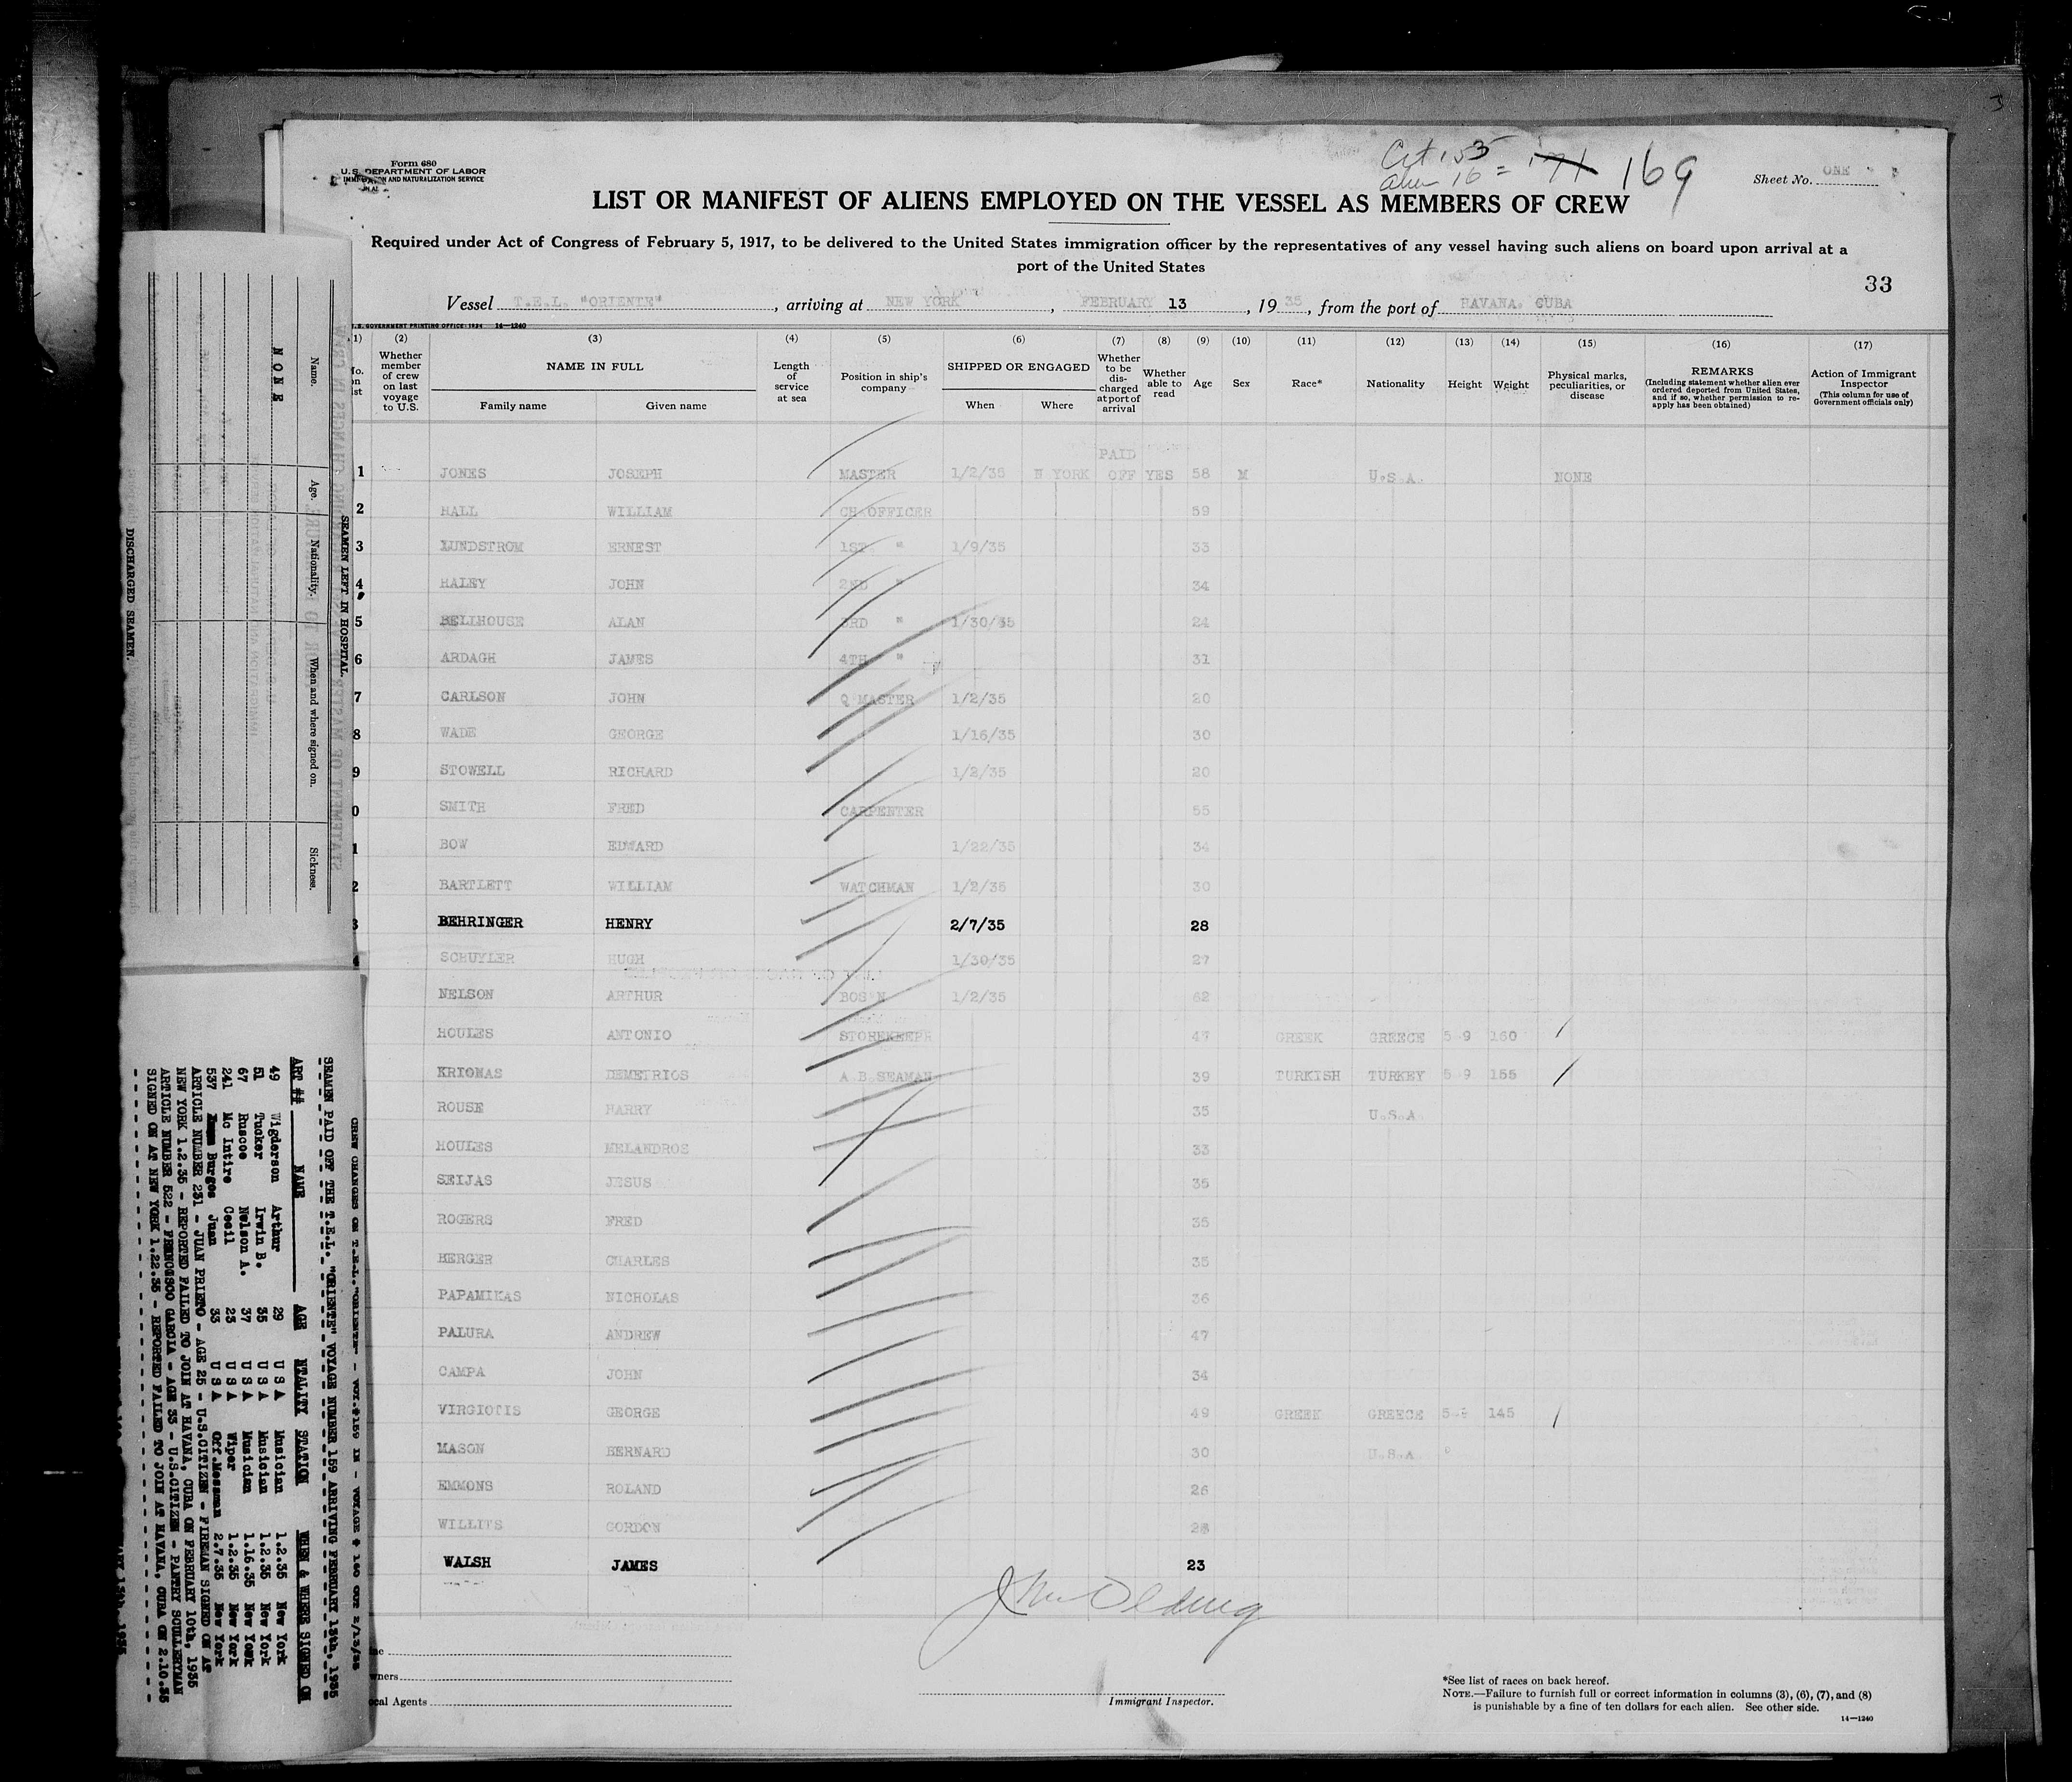 Form 680
U.S. DEPARTMENT OF LABOR
IMMIGRATION AND NATURALIZATION SERVICE
Cit 153
Alien 16 = 171 169
Sheet No. ONE
LIST OR MANIFEST OF ALIENS EMPLOYED ON THE VESSEL AS MEMBERS OF CREW
Required under Act of Congress of February 5, 1917, to be delivered to the United States immigration officer by the representatives of any vessel having such aliens on board upon arrival at a
port of the United States
33
Vessel T.E.L. "ORIENTE", arriving at NEW YORK, FEBRUARY 13, 1935, from the port of HAVANA. CUBA
U.S. GOVERNMENT PRINTING OFFICE: 1934 14—1240
(1) (2) (3) (4) (5) (6) (7) (8) (9) (10) (11) (12) (13) (14) (15) (16) (17)
No. on list
Whether member of crew on last voyage to U.S.
NAME IN FULL
Family name Given name
Length of service at sea
Position in ship's company
SHIPPED OR ENGAGED
When Where
Whether to be discharged at port of arrival
Whether able to read
Age
Sex
Race*
Nationality
Height
Weight
Physical marks, peculiarities, or disease
REMARKS
(Including statement whether alien ever ordered deported from United States, and if so, whether permission to re-apply has been obtained)
Action of Immigrant Inspector
(This column for use of Government officials only)
1 JONES JOSEPH MASTER 1/2/35 N YORK PAID OFF YES 58 M U.S.A. NONE
2 HALL WILLIAM CH OFFICER 59
3 LUNDSTROM ERNEST 1ST " 1/9/35 33
4 HALEY JOHN 2ND " 34
5 BELLHOUSE ALAN 3RD " 1/30/35 24
6 ARDAGH JAMES 4TH " 31
7 CARLSON JOHN Q MASTER 1/2/35 20
8 WADE GEORGE 1/16/35 30
9 STOWELL RICHARD 1/2/35 20
0 SMITH FRED CARPENTER 55
1 BOW EDWARD 1/22/35 34
2 BARTLETT WILLIAM WATCHMAN 1/2/35 30
3 BEHRINGER HENRY 2/7/35 28
4 SCHUYLER HUGH 1/30/35 27
NELSON ARTHUR BOS N 1/2/35 62
HOULES ANTONIO STOREKEEPR 47 GREEK GREECE 5 9 160
KRIONAS DEMETRIOS A B SEAMAN 39 TURKISH TURKEY 5 9 155
ROUSE HARRY 35 U.S.A.
HOULES MELANDROS 33
SEIJAS JESUS 35
ROGERS FRED 35
BERGER CHARLES 35
PAPAMIKAS NICHOLAS 36
PALURA ANDREW 47
CAMPA JOHN 34
VIRGIOTIS GEORGE 49 GREEK GREECE 145
MASON BERNARD 30 U.S.A
EMMONS ROLAND 26
WILLITS GORDON
WALSH JAMES 23
Immigrant Inspector.
owners
ocal Agents
*See list of races on back hereof.
NOTE.—Failure to furnish full or correct information in columns (3), (6), (7), and (8)
is punishable by a fine of ten dollars for each alien. See other side.
14—1240
SEAMEN LEFT IN HOSPITAL.
Name. Age. Nationality. When and where signed on. Sickness.
NONE
DISCHARGED SEAMEN.
CREW CHANGES ON T.E.L. "ORIENTE" - VOY.#159 IN - VOYAGE # 160 OUT 2/13/35
SEAMEN PAID OFF THE T.E.L. "ORIENTE" VOYAGE NUMBER 159 ARRIVING FEBRUARY 13th, 1935
ART ## NAME AGE NTALITY STATION WHEN & WHERE SIGNED ON
49 Wigderson Arthur 29 U S A Musician 1.2.35 New York
51 Tucker Irwin B. 35 U S A Musician 1.2.35 New York
67 Ruscoe Nelson A. 37 U S A Musician 1.16.35 New York
241 Mc Intire Cecil 23 U S A Wiper 1.2.35 New York
537 Burgos Juan 33 U S A Off.Messman 2.7.35 New York
ARTICLE NUMBER 231 - JUAN PRIETO - AGE 25 - U.S.CITIZEN - FIREMAN SIGNED ON AT
NEW YORK 1.2.35 - REPORTED FAILED TO JOIN AT HAVANA, CUBA ON FEBRUARY 10th, 1935
ARTICLE NUMBER 522 - FRENCISCO GARCIA - AGE 33 - U.S.CITIZEN - PANTRY SCULLERYMAN
SIGNED ON AT NEW YORK 1.22.35 - REPORTED FAILED TO JOIN AT HAVANA, CUBA ON 2.10.35